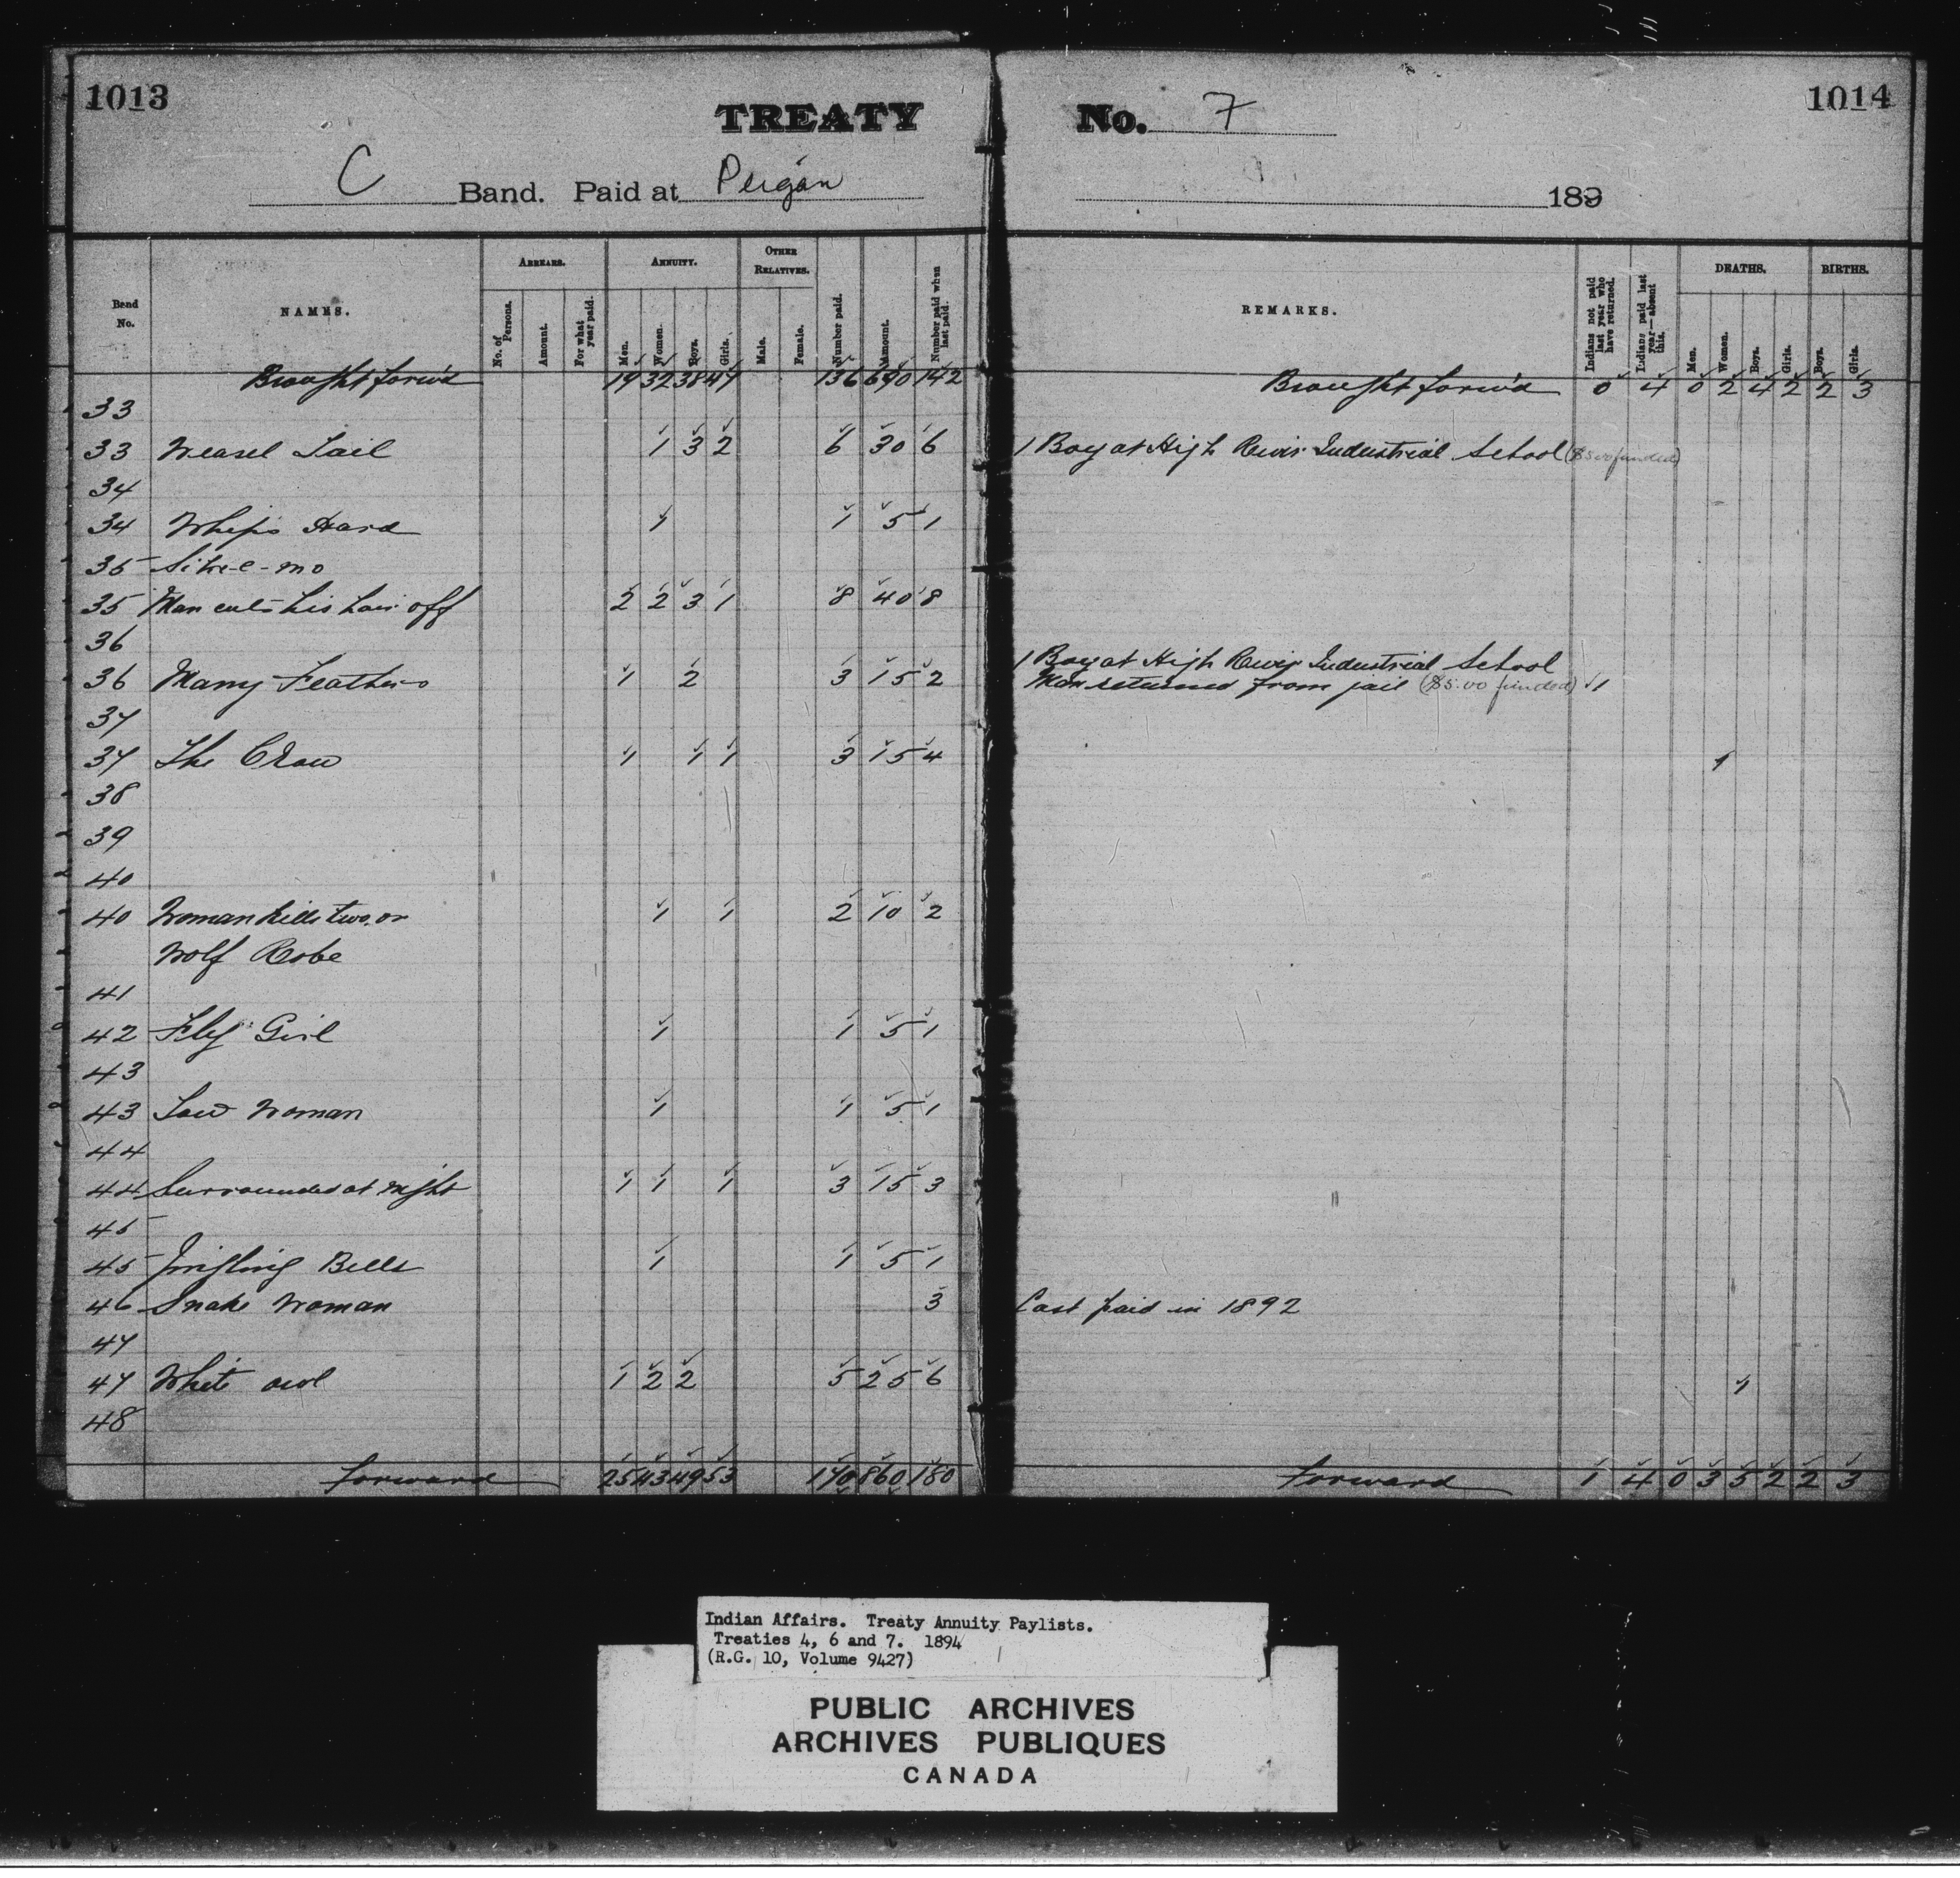 1013
TREATY
C Band. Paid at Peigan
Band No. NAMES. ARREARS. No. of Persons. Amount. For what year paid. ANNUITY. Men. Women. Boys. Girls. OTHER RELATIVES. Male. Female. Number paid. Amount. Number paid when last paid.
Brought forw'd 19 32 38 47 136 690 142
33
33 Weasel Tail 1 3 2 6 30 6
34
34 Whips Hard 1 1 5 1
35
35 Man cuts his hair off 2 2 3 1 8 40 8
36
36 Many Feathers 1 2 3 15 2
37
37 The Crow 1 1 1 3 15 4
38
39
40
40 Woman kills two, or 1 1 2 10 2
Wolf Robe
41
42 Fly Girl 1 1 5 1
43
43 Low Woman 1 1 5 1
44
44 Surrounded at night 1 1 1 3 15 3
45
45 Jingling Bells 1 1 5 1
46 Snake Woman 3
47
47 White owl 1 2 2 5 25 6
48
Forward 25 43 49 53 170 860 180
1014
No. 7
189
REMARKS. Indians not paid last year who have returned. Indians paid last year—absent this. DEATHS. Men. Women. Boys. Girls. BIRTHS. Boys. Girls.
Brought forw'd 0 4 0 2 4 2 2 3
1 Boy at High River Industrial School ($5.00 funded)
1 Boy at High River Industrial School
Man returned from jail ($5.00 funded) 1
1
Last paid in 1892
1
Forward 1 4 0 3 5 2 2 3
Indian Affairs. Treaty Annuity Paylists.
Treaties 4, 6 and 7. 1894
(R.G. 10, Volume 9427)
PUBLIC ARCHIVES
ARCHIVES PUBLIQUES
CANADA